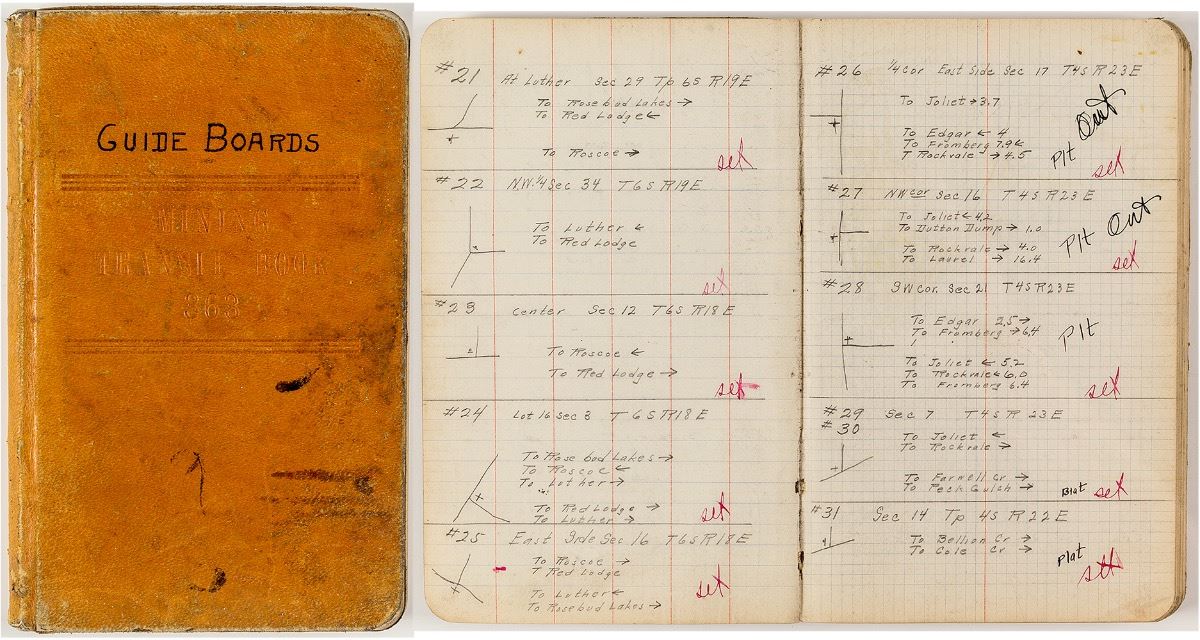 GUIDE BOARDS
MINING
TRANSIT BOOK
363
#21 At Luther Sec 29 Tp 6S R19E
To Rosebud Lakes →
To Red Lodge ←
To Roscoe →
set
#22 N.W. 1/4 Sec 34 T6S R19E
To Luther ←
To Red Lodge
set
#23 Center Sec 12 T6S R18E
To Roscoe ←
To Red Lodge →
set
#24 Lot 16 Sec 3 T6S R18E
To Rose bud Lakes →
To Roscoe ←
To Luther →
To Red Lodge →
To Luther →
set
#25 East Side Sec 16 T6S R18E
To Roscoe →
T Red Lodge
To Luther ←
To Rosebud Lakes →
set
#26 1/4 cor East Side Sec 17 T4S R23E
To Joliet → 3.7
To Edgar ← 4
To Fromberg 7.9 ←
T Rockvale → 4.5
Plt Out
set
#27 NW cor Sec 16 T4S R23E
To Joliet ← 4.2
To Dutton Dump → 1.0
To Rockvale → 4.0
To Laurel → 16.4
Plt Out
set
#28 SW cor. Sec 21 T4S R23E
To Edgar 2.5 →
To Fromberg → 6.4
To Joliet ← 5.2
To Rockvale ← 6.0
To Fromberg 6.4
Plt
set
#29 Sec 7 T4S R 23E
#30
To Joliet ←
To Rockvale →
To Farwell Cr →
To Peck Gulch →
Blat set
#31 Sec 14 Tp 4S R 22E
To Bellion Cr →
To Cole Cr →
Plat
set